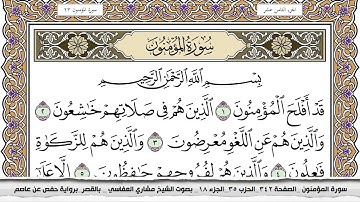 الجزء الثامن عشر
سورة المؤمنون ٢٣
سُورَةُ المُؤْمِنُونَ
بِسْمِ اللَّهِ الرَّحْمَٰنِ الرَّحِيمِ
قَدْ أَفْلَحَ الْمُؤْمِنُونَ ١ الَّذِينَ هُمْ فِي صَلَاتِهِمْ خَاشِعُونَ ٢
وَالَّذِينَ هُمْ عَنِ اللَّغْوِ مُعْرِضُونَ ٣ وَالَّذِينَ هُمْ لِلزَّكَوٰةِ
فَاعِلُونَ ٤ وَالَّذِينَ هُمْ لِفُرُوجِهِمْ حَافِظُونَ ٥ إِلَّا عَلَىٰ
سورة المؤمنون _ الصفحة ٣٤٢ _ الحزب ٣٥ _ الجزء ١٨ _ بصوت الشيخ مشاري العفاسي _ بالقصر _ برواية حفص عن عاصم